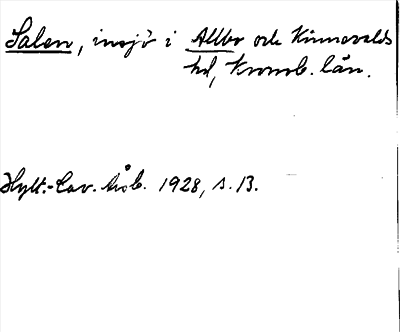 Salen, insjö i Allbo och Kinnevalds
hd, Kronob. län.
Hylt.-Cav. Årsb. 1928, s. 13.